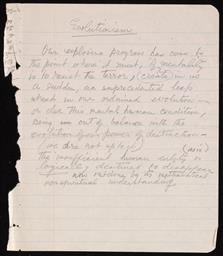 Evolutionism
Our explosive progress has come to
the point where it must, if mentality
is to resist the terror, (create) in us
a sudden, an unprecedented leap
ahead in our ordained evolution —
or else this mental human condition,
being in out of balance with the
evolution of our power of destruction —
(we are not up to )
the insufficient human entity is
logically destined to disappear
now
nonspiritual understanding